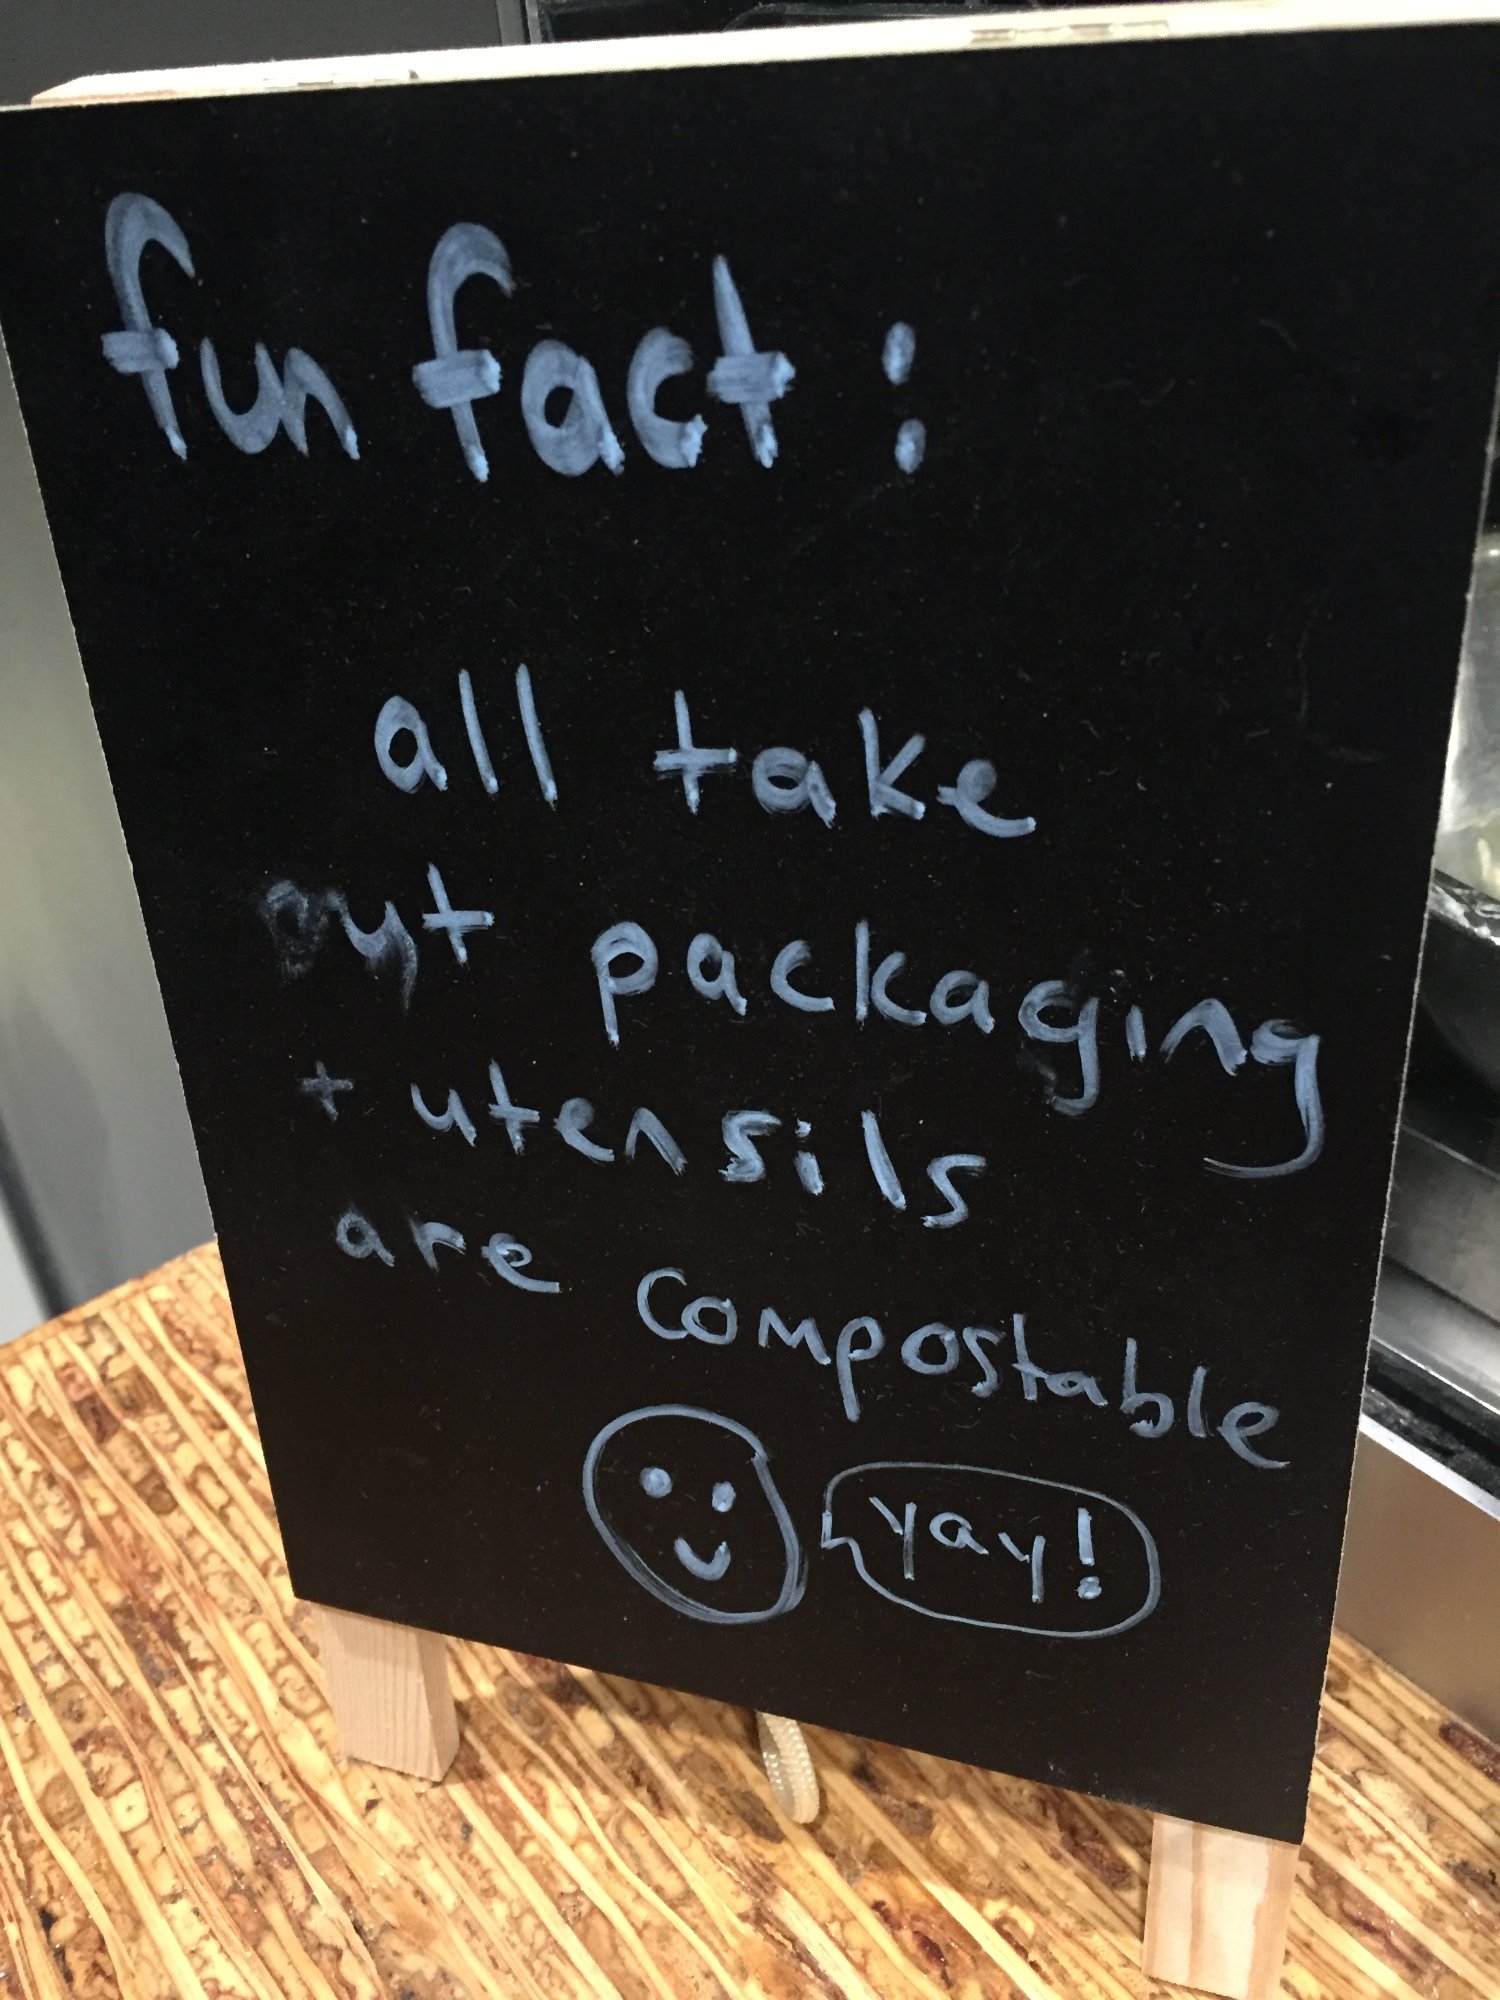 fun fact :
all take
out packaging
+ utensils
are compostable
yay!